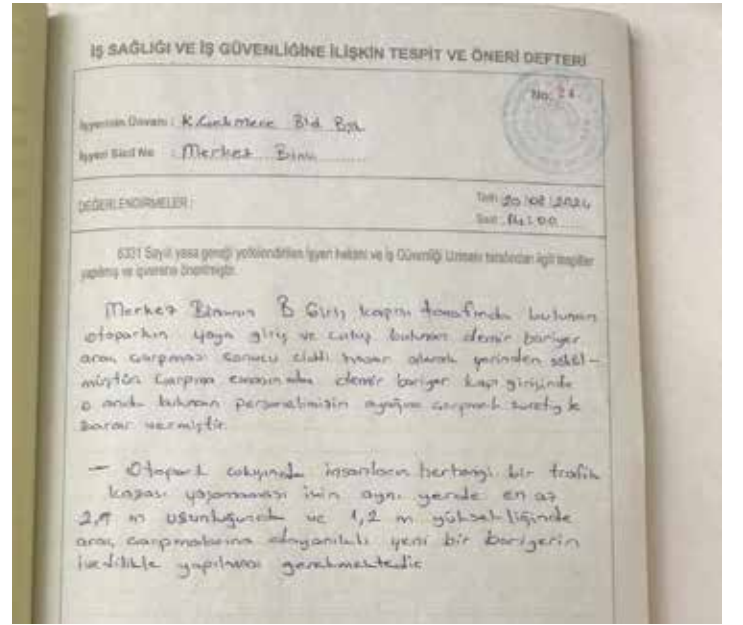 İŞ SAĞLIĞI VE İŞ GÜVENLİĞİNE İLİŞKİN TESPİT VE ÖNERİ DEFTERİ
No: 24
İşyerinin Ünvanı : K.Çekmece Bld Bşk.
İşyeri Sicil No : Merkez Bina
DEĞERLENDİRMELER :
Tarih: 20/08/2024
Saat: 14:00
6331 Sayılı yasa gereği yetkilendirilen İşyeri hekimi ve İş Güvenliği Uzmanı tarafından ilgili tespitler
yapılmış ve işverene önerilmiştir.
Merkez Binanın B Giriş kapısı tarafında bulunan
otoparkın yaya giriş ve çıkışı bulunan demir bariyer
araç çarpması sonucu ciddi hasar alarak yerinden sökül-
müştür. Çarpma esnasında demir bariyer kapı girişinde
o anda bulunan personelimizin ayağına çarpmak suretiyle
zarar vermiştir.
— Otopark çıkışında insanların herhangi bir trafik
kazası yaşamaması için aynı yerde en az
m uzunluğunda ve 1,2 m yüksekliğinde
araç çarpmalarına dayanıklı yeni bir bariyerin
ivedilikle yapılması gerekmektedir